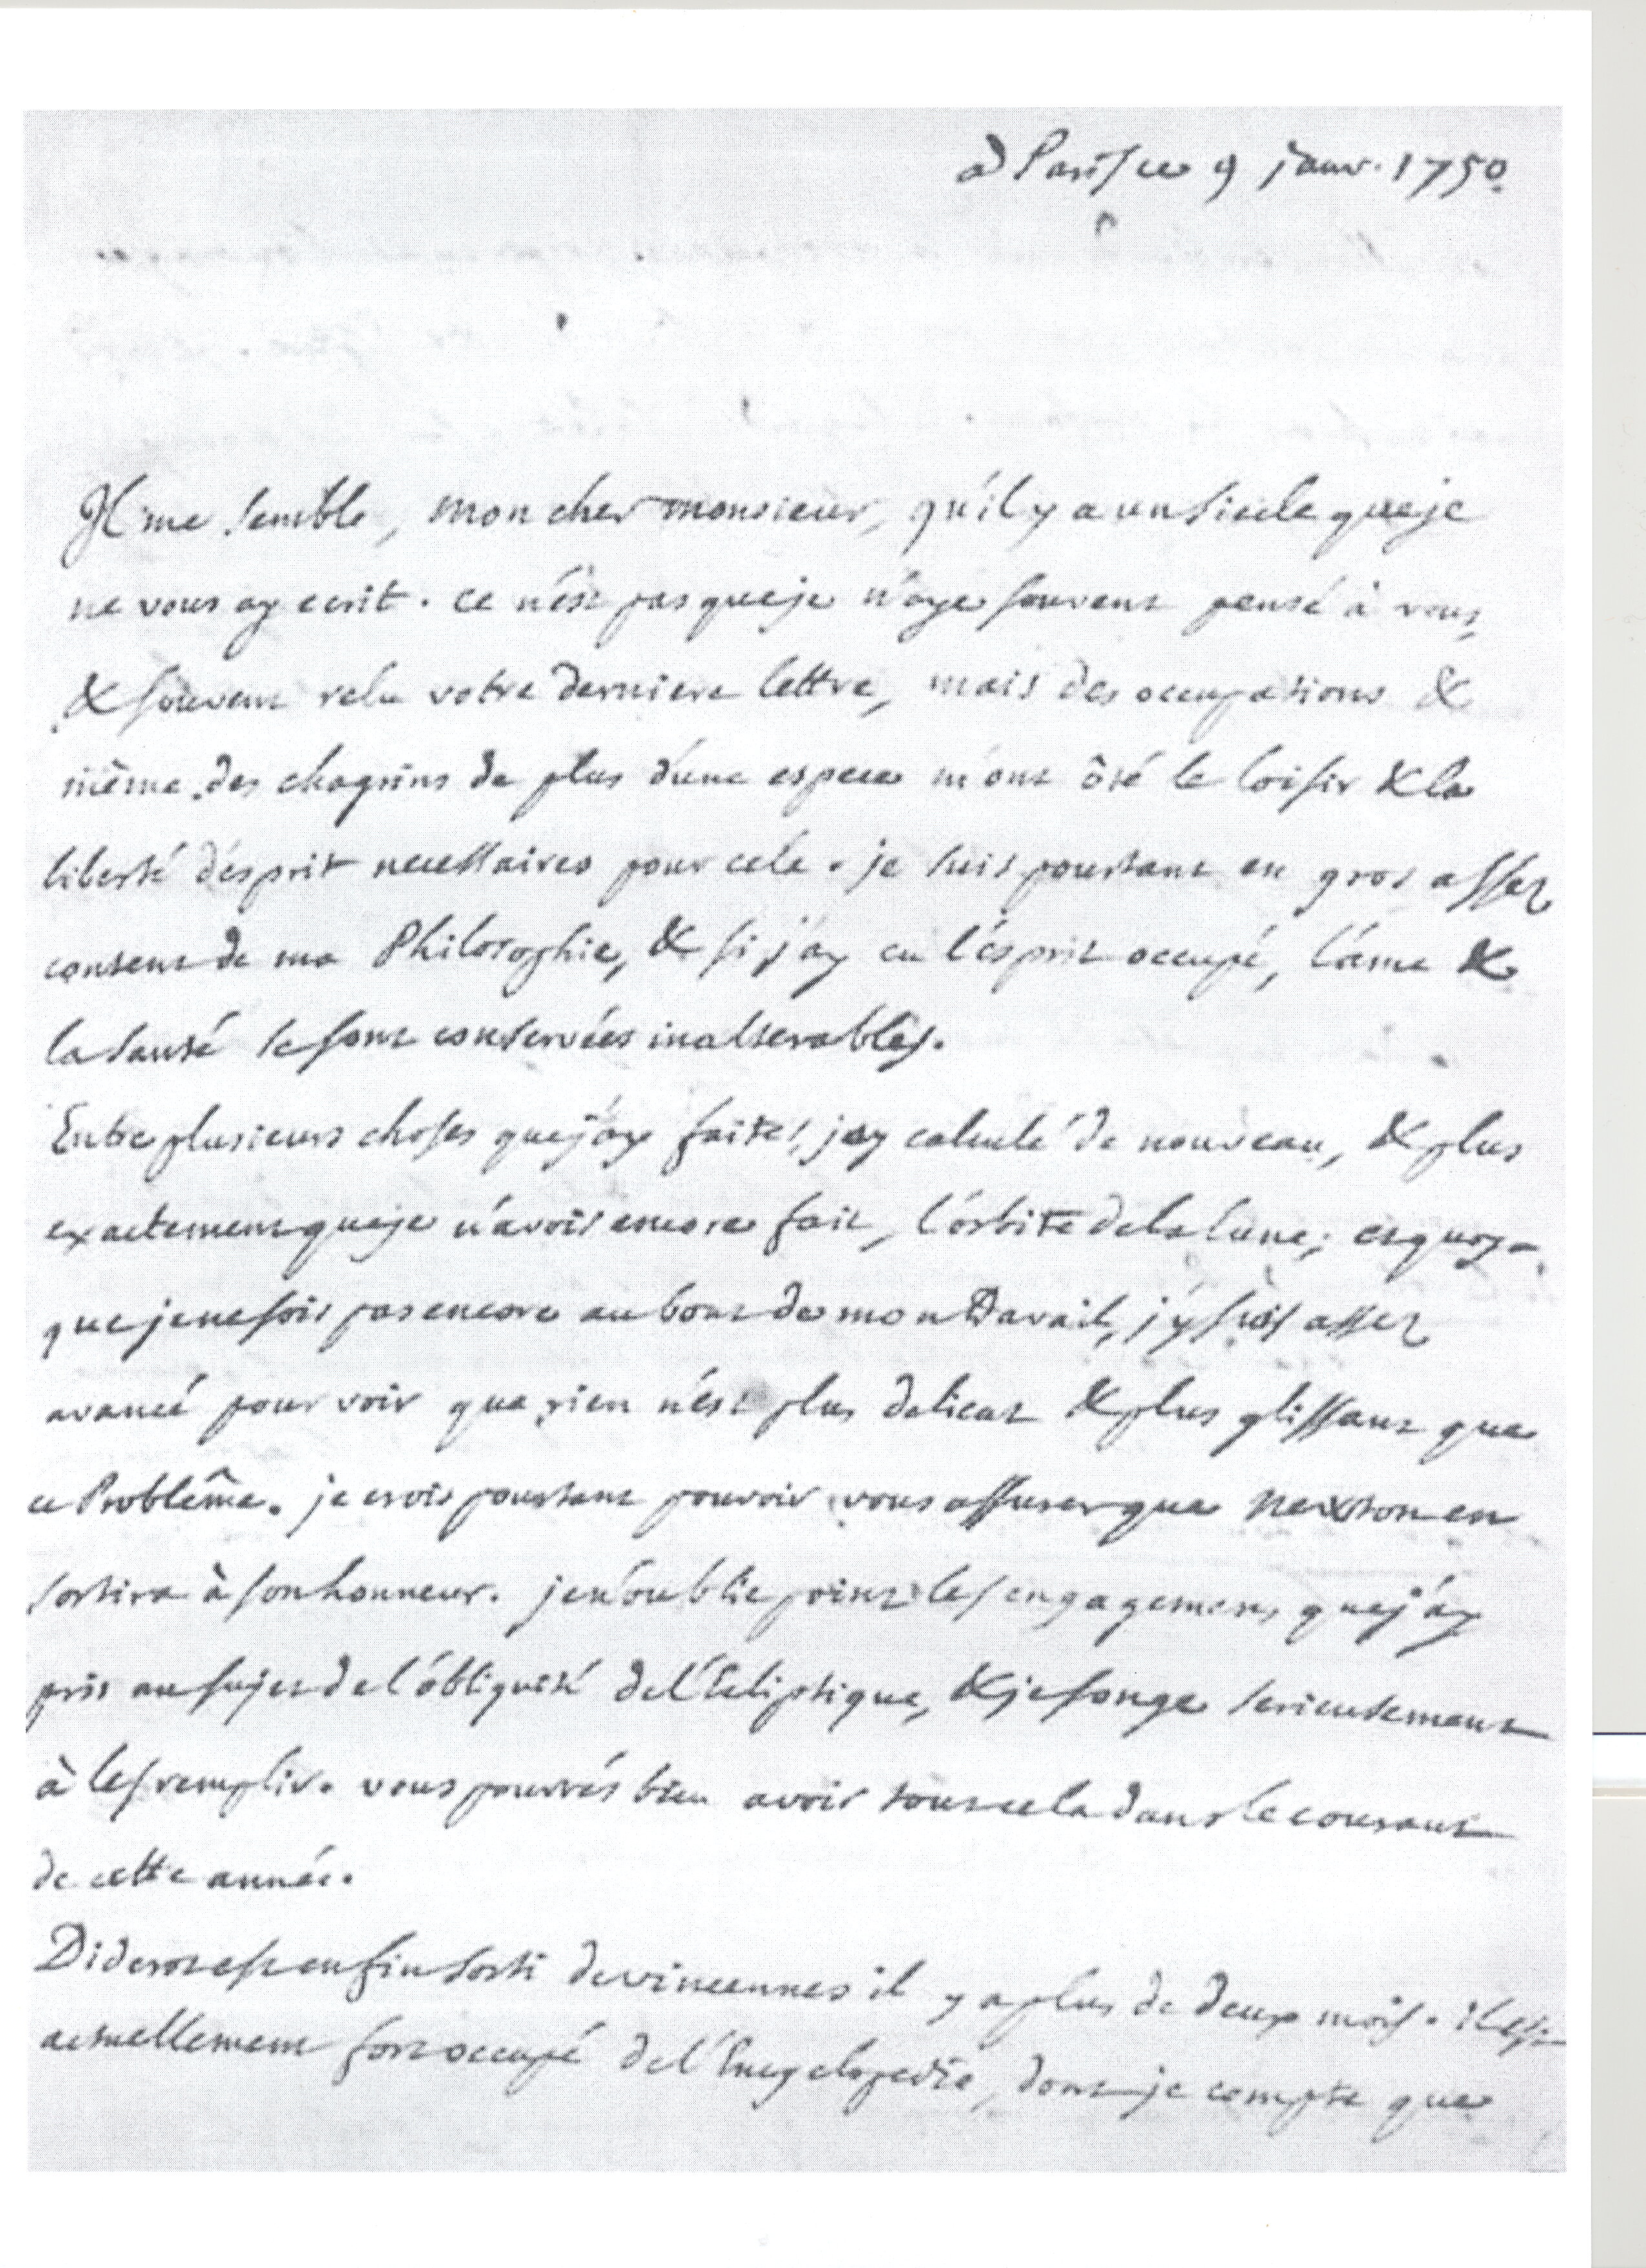 à Paris ce 9 janv. 1750.
Il me semble, mon cher monsieur, qu'il y a un siecle que je
ne vous ay ecrit. ce n'est pas que je n'aye souvent pensé à vous,
& souvent relu votre derniere lettre, mais des occupations &
même des chagrins de plus d'une espece m'ont ôté le loisir & la
liberté d'esprit necessaires pour cela. je suis pourtant en gros assez
content de ma Philosophie, & si j'ay eu l'esprit occupé, l'ame &
la santé se sont conservées inalterables.
Entre plusieurs choses que j'ay faites, j'ay calculé de nouveau, & plus
exactement que je n'avois encore fait, l'orbite de la lune; et quoy-
que je ne sois pas encore au bout de mon travail, j'y suis assez
avancé pour voir que rien n'est plus delicat & plus glissant que
ce Problême. je crois pourtant pouvoir vous assurer que Newton en
sortira à son honneur. je n'oublie point les engagemens que j'ay
pris au sujet de l'obliquité de l'Ecliptique, & je songe serieusement
à les remplir. vous pourrés bien avoir tout cela dans le courant
de cette année.
Diderot est enfin sorti de vincennes il y a plus de deux mois. il est
actuellement fort occupé de l'Encyclopedie, dont je compte que